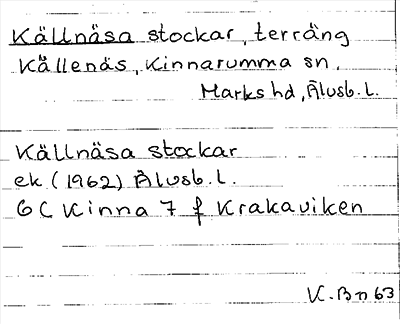 Källnäsa stockar, terräng
Källenäs, Kinnarumma sn,
Marks hd, Älvsb. L.
Källnäsa stockar
ek (1962) Älvsb. L.
6 C Kinna 7 f Krakaviken
K. Bn 63